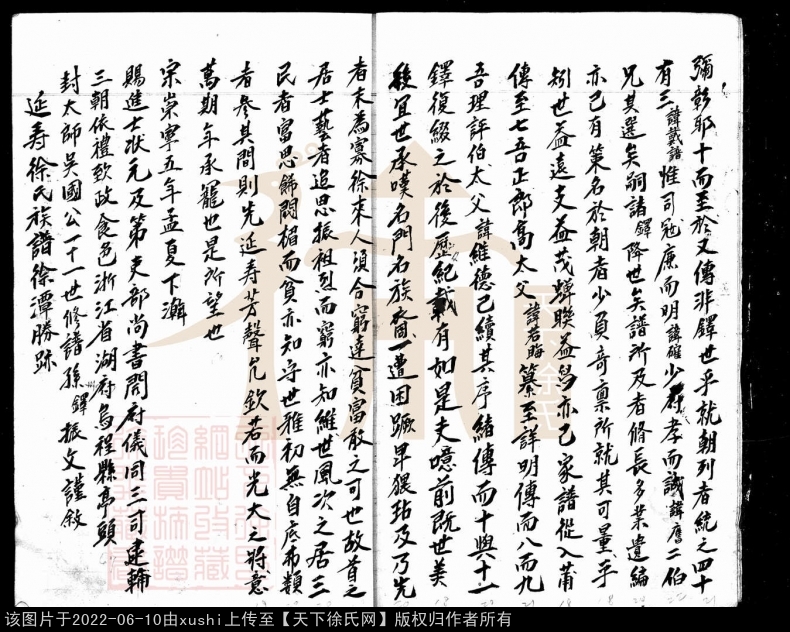 彌彰耶十而至於又傳非鐸世乎就朝列者統之四十
有三諱戴諳惟司冠廉而明諱確少府孝而誠諱膺二伯
兄其選矣嗣諸鐸降世矣譜所及者脩長多業遺編
亦已有策名於朝者少頁奇稟所就其可量乎
矧世益遠支益茂蟬聯益昌亦已家譜從入莆
傳至七吾正郎高太父諱若晦纂至詳明傳而八而九
吾理評伯太父諱維德已續其序緒傳而十與十一
鐸復綴之於後歷紀載有如是夫噫前既世美
後宜世承嘆名門名族一遭困蹶卑猥玷及乃先
者未為寡徐來人須合窮達貧富敢之可也故昔之
居士藝者追思振祖烈而窮亦知維世風次之居三
民者富思歸閥楣而貧亦知守世雅初無自底弗類
者參其間則先延壽芳聲允欽若而光大之將意
萬期年承寵也是所望也
宗崇寧五年孟夏下澣
賜進士狀元及第吏部尚書開府儀同三司逮輔
三朝依禮致政食邑浙江省湖府烏程縣亭頭
封太師吳國公十一世修譜孫鐸振文謹敘
延壽徐氏族譜徐潭勝跡
该图片于2022-06-10由xushi上传至【天下徐氏网】版权归作者所有